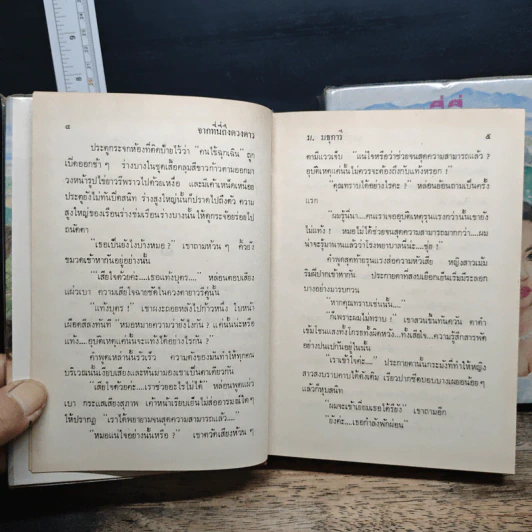 ๔
จากที่นี่ถึงดวงดาว
ประตูกระจกห้องที่ติดป้ายไว้ว่า “คนไข้ฉุกเฉิน” ถูก
เปิดออกช้า ๆ ร่างบางในชุดเสื้อคลุมสีขาวก้าวตามออกมา
ประตูยังไม่ทันปิดสนิท ร่างสูงใหญ่นั้นก็ปราดไปถึงตัว ความ
ถนัดตา
“เธอเป็นยังไงบ้างหมอ ?” เขาถามห้วน ๆ คิ้วยัง
ขมวดเข้าหากันอยู่อย่างนั้น
“เสียใจด้วยค่ะ....เธอแท้งบุตร....” หล่อนตอบเสียง
แผ่วเบา ความเสียใจฉายชัดในดวงตายาวรีคู่นั้น
“แท้งบุตร !” เขาผงะถอยหลังไปก้าวหนึ่ง ใบหน้า
เผือดสีลงทันที “หมอหมายความว่ายังไงกัน ? แค่นั้นน่ะหรือ
แท้ง... อุบัติเหตุแค่นั้นน่ะจะแท้งได้อย่างไรกัน ?”
คำพูดเหล่านั้นรัวเร็ว ความดังของมันทำให้ทุกคน
บริเวณนั้นเงียบเสียงและหันมามองเขาเป็นตาเดียวกัน
“เสียใจด้วยค่ะ....เราช่วยอะไรไม่ได้” หล่อนพูดแผ่ว
เบา กระแสเสียงสุภาพ เค้าหน้าเรียบเย็นไม่ส่ออารมณ์ใดๆ
ให้ปรากฏ “เราได้พยายามจนสุดความสามารถแล้ว....”
“หมอแน่ใจอย่างนั้นหรือ ?” เขาตวัดเสียงห้วน ๆ
ม. มธุการี
๕
ตามีแววเจ็บ “แน่ใจหรือว่าช่วยจนสุดความสามารถแล้ว ?
อุบัติเหตุแค่นั้นไม่ควรจะต้องถึงกับแท้งหรอก !”
“คุณทราบได้อย่างไรคะ ?” หล่อนย้อนถามเป็นครั้ง
แรก
“ผมรู้ก็น่า...คนเราเจออุบัติเหตุรุนแรงกว่านั้นเขายัง
ไม่แท้ง ! หมอไม่ได้ช่วยจนสุดความสามารถมากกว่า...ผม
น่าจะรู้มานานแล้วว่าโรงพยาบาลนี่น่ะ....ชุ่ย !”
คำพูดสุดท้ายรุนแรงส่อความหัวเสีย หญิงสาวเม้ม
ริมฝีปากเข้าหากัน ประกายตาที่สงบเยือกเย็นเริ่มมีระลอก
บางอย่างมารบกวน
“หากคุณทราบเช่นนั้น....”
“ก็เพราะผมไม่ทราบ !” เขาสวนขึ้นทันควัน ตาดำ
อย่างปนเปกันอยู่ในนั้น
“เราเข้าใจค่ะ....” ประกายตานั้นกระมังที่ทำให้หญิง
แล้วก็หุบสนิท
“ผมจะเข้าเยี่ยมเธอได้รึยัง” เขาถามอีก
“ยังค่ะ....เธอกำลังพักผ่อน”